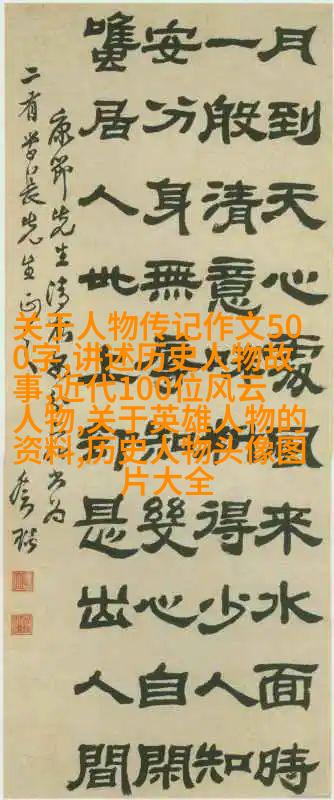 月到天心處風來水面時
一般清意味料得少人知
安分身無辱知幾心自閑
雖居人世上却是出人間
康節先生清夜吟 書為
二有學長先生正之
关于人物传记作文50
0字,讲述历史人物故
事,近代100位风云
人物,关于英雄人物的
资料,历史人物头像图
片大全